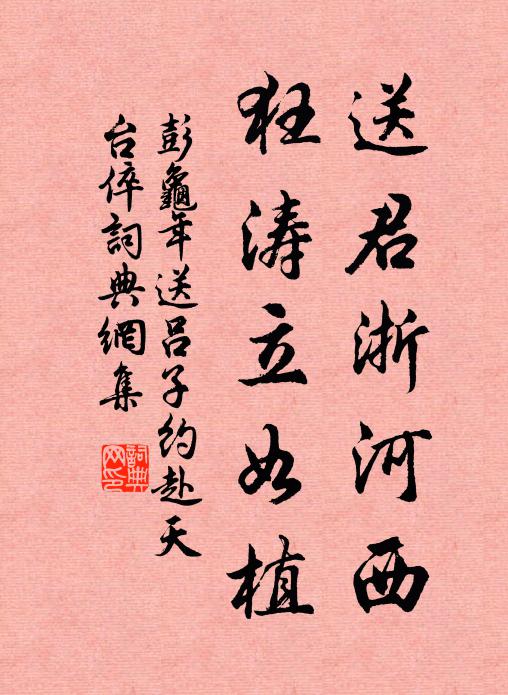 送君浙河西
狂涛立如植
彭龜年送吕子约赴天
台倅詞典網集
詞典
网印